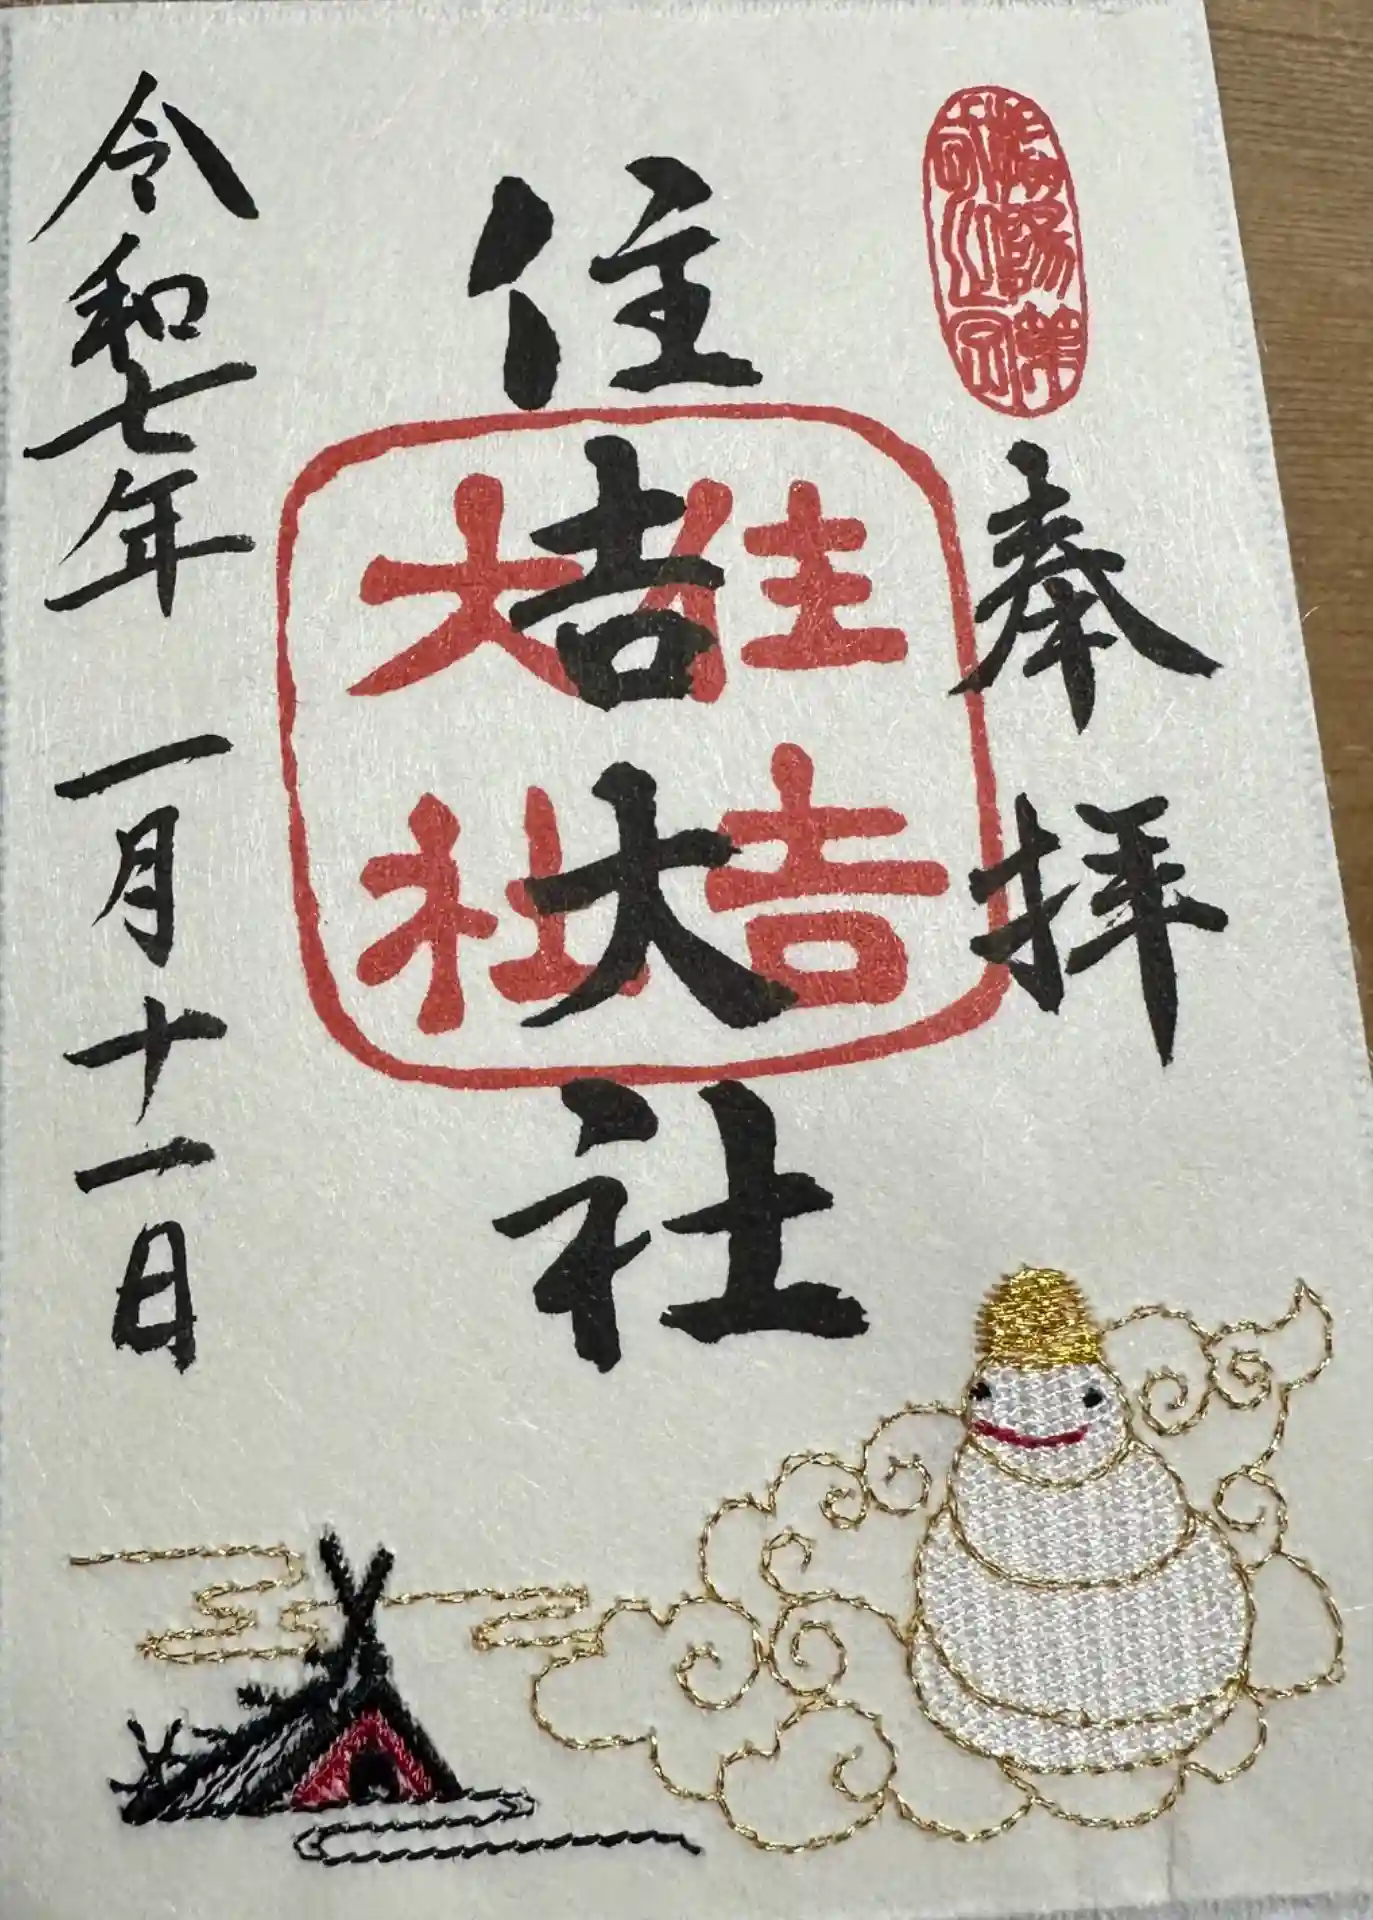 奉拝
住吉大社
住吉
大社
令和七年一月十一日